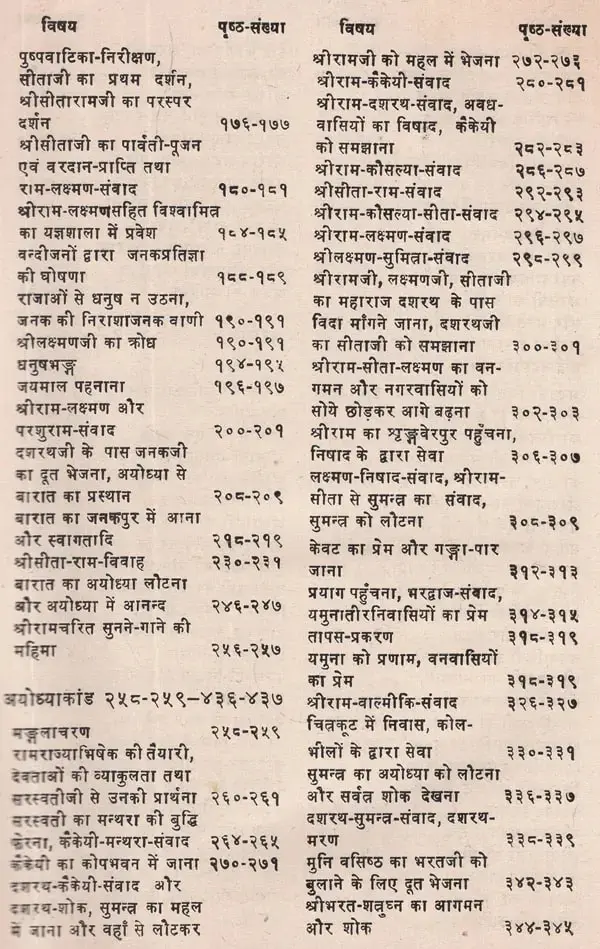 विषय पृष्ठ-संख्या
पुष्पवाटिका-निरीक्षण,
सीताजी का प्रथम दर्शन,
श्रीसीतारामजी का परस्पर
दर्शन १७६-१७७
श्रीसीताजी का पार्वती-पूजन
एवं वरदान-प्राप्ति तथा
राम-लक्ष्मण-संवाद १८०-१८१
श्रीराम-लक्ष्मणसहित विश्वामित्र
का यज्ञशाला में प्रवेश १८४-१८५
बन्दीजनों द्वारा जनकप्रतिज्ञा
की घोषणा १८८-१८९
राजाओं से धनुष न उठना,
जनक की निराशाजनक वाणी १९०-१९१
श्रीलक्ष्मणजी का क्रोध १९०-१९१
धनुषभङ्ग १९४-१९५
जयमाल पहनाना १९६-१९७
श्रीराम-लक्ष्मण और
परशुराम-संवाद २००-२०१
दशरथजी के पास जनकजी
का दूत भेजना, अयोध्या से
बारात का प्रस्थान २०८-२०९
बारात का जनकपुर में आना
और स्वागतादि २१८-२१९
श्रीसीता-राम-विवाह २३०-२३१
बारात का अयोध्या लौटना
और अयोध्या में आनन्द २४६-२४७
श्रीरामचरित सुनने-गाने की
महिमा २५६-२५७
अयोध्याकांड २५८-२५९—४३६-४३७
मङ्गलाचरण २५८-२५९
रामराज्याभिषेक की तैयारी,
देवताओं की व्याकुलता तथा
सरस्वतीजी से उनकी प्रार्थना २६०-२६१
सरस्वती का मन्थरा की बुद्धि
फेरना, कैकेयी-मन्थरा-संवाद २६४-२६५
कैकेयी का कोपभवन में जाना २७०-२७१
दशरथ-कैकेयी-संवाद और
दशरथ-शोक, सुमन्त्र का महल
में जाना और वहाँ से लौटकर
विषय पृष्ठ-संख्या
श्रीरामजी को महल में भेजना २७२-२७३
श्रीराम-कैकेयी-संवाद २८०-२८१
श्रीराम-दशरथ-संवाद, अवध-
वासियों का विषाद, कैकेयी
को समझाना २८२-२८३
श्रीराम-कौसल्या-संवाद २८६-२८७
श्रीसीता-राम-संवाद २९२-२९३
श्रीराम-कौसल्या-सीता-संवाद २९४-२९५
श्रीराम-लक्ष्मण-संवाद २९६-२९७
श्रीलक्ष्मण-सुमित्रा-संवाद २९८-२९९
श्रीरामजी, लक्ष्मणजी, सीताजी
का महाराज दशरथ के पास
विदा माँगने जाना, दशरथजी
का सीताजी को समझाना ३००-३०१
श्रीराम-सीता-लक्ष्मण का वन-
गमन और नगरवासियों को
सोये छोड़कर आगे बढ़ना ३०२-३०३
श्रीराम का शृङ्गवेरपुर पहुँचना,
निषाद के द्वारा सेवा ३०६-३०७
लक्ष्मण-निषाद-संवाद, श्रीराम-
सीता से सुमन्त्र का संवाद,
सुमन्त्र को लौटना ३०८-३०९
केवट का प्रेम और गङ्गा-पार
जाना ३१२-३१३
प्रयाग पहुँचना, भरद्वाज-संवाद,
यमुनातीरनिवासियों का प्रेम ३१४-३१५
तापस-प्रकरण ३१८-३१९
यमुना को प्रणाम, वनवासियों
का प्रेम ३१८-३१९
श्रीराम-वाल्मीकि-संवाद ३२६-३२७
चित्रकूट में निवास, कोल-
भीलों के द्वारा सेवा ३३०-३३१
सुमन्त्र का अयोध्या को लौटना
और सर्वत्र शोक देखना ३३६-३३७
दशरथ-सुमन्त्र-संवाद, दशरथ-
मरण ३३८-३३९
मुनि वसिष्ठ का भरतजी को
बुलाने के लिए दूत भेजना ३४२-३४३
श्रीभरत-शत्रुघ्न का आगमन
और शोक ३४४-३४५